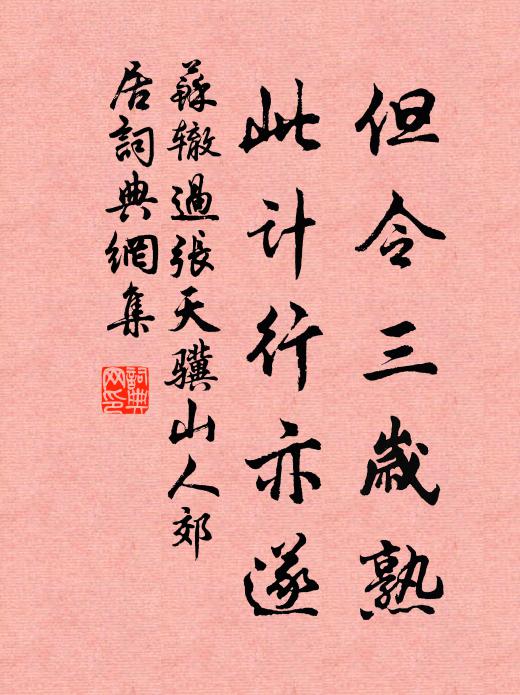 但令三歲熟
此计行亦遂
蘇辙過張天骥山人郊
居詞典網集
詞典
网印